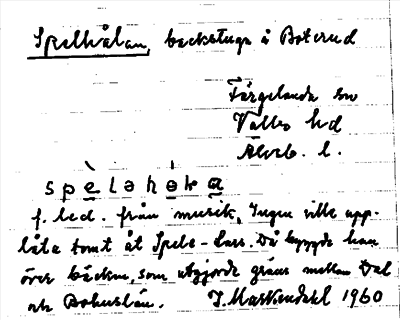 Spelhålan, backstuga å Boterud
Färgelanda sn
Valbo hd
Älvsb. l.
spèlahòka
f. led. från musik. Ingen ville upp-
låta tomt åt Spele-Lars. Då byggde han
över bäcken, som utgjorde gräns mellan Dal
och Bohuslän. J. Markendahl 1960